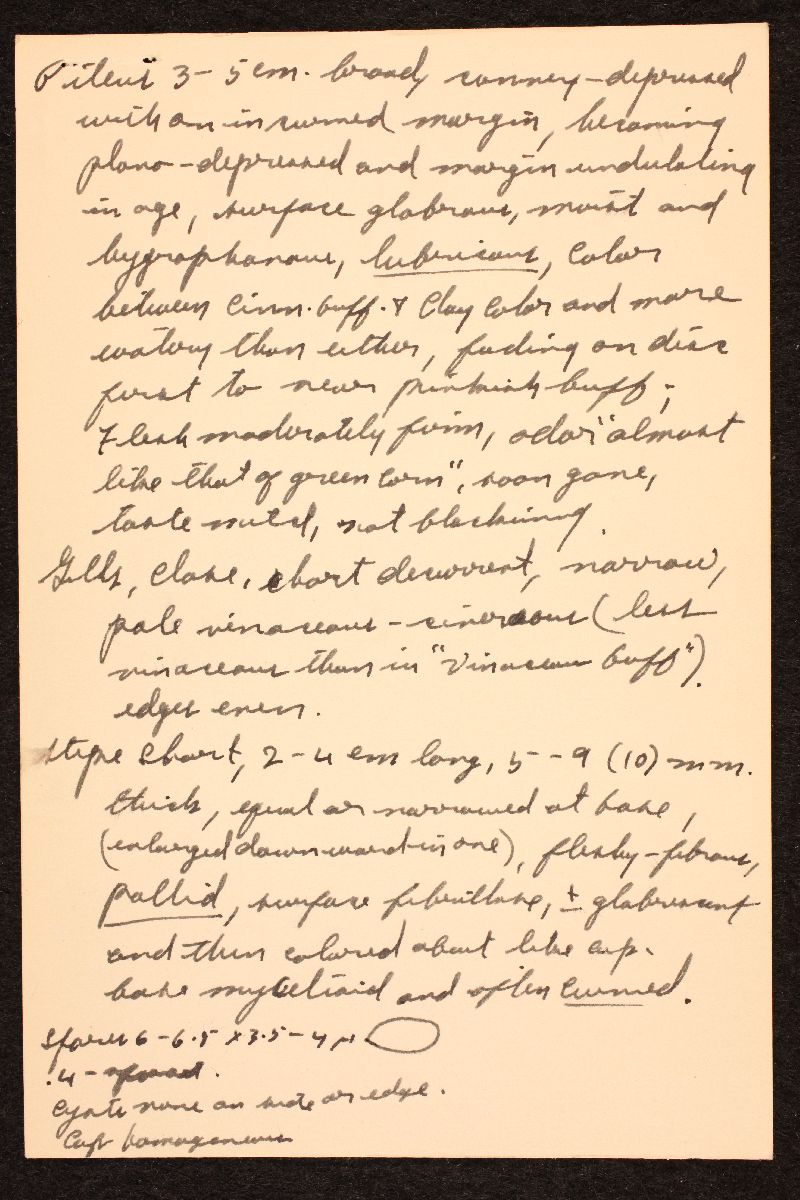 Pileus 3-5 cm. broad, convex-depressed
with an incurved margin, becoming
plano-depressed and margin undulating
in age, surface glabrous, moist and
hygrophanous, lubricous, color
between Cinn.-buff & Clay Color and more
watery than either, fading on disc
first to near pinkish buff;
Flesh moderately firm, odor "almost
like that of green corn", soon gone,
taste mild, not blackening.
Gills, close, short decurrent, narrow,
pale vinaceous-cinereous (less
vinaceous than in "Vinaceous buff").
edges even.
Stipe short, 2-4 cm long, 5-9 (10) mm.
thick, equal or narrowed at base,
(enlarged downward in one), fleshy-fibrous,
pallid, surface fibrillose, ± glabrescent
and then colored about like cap.
base mycelioid and often curved.
Spores 6-6.5 x 3.5-4 µ
.4-
Cysts none on side or edge.
Cap homogeneous